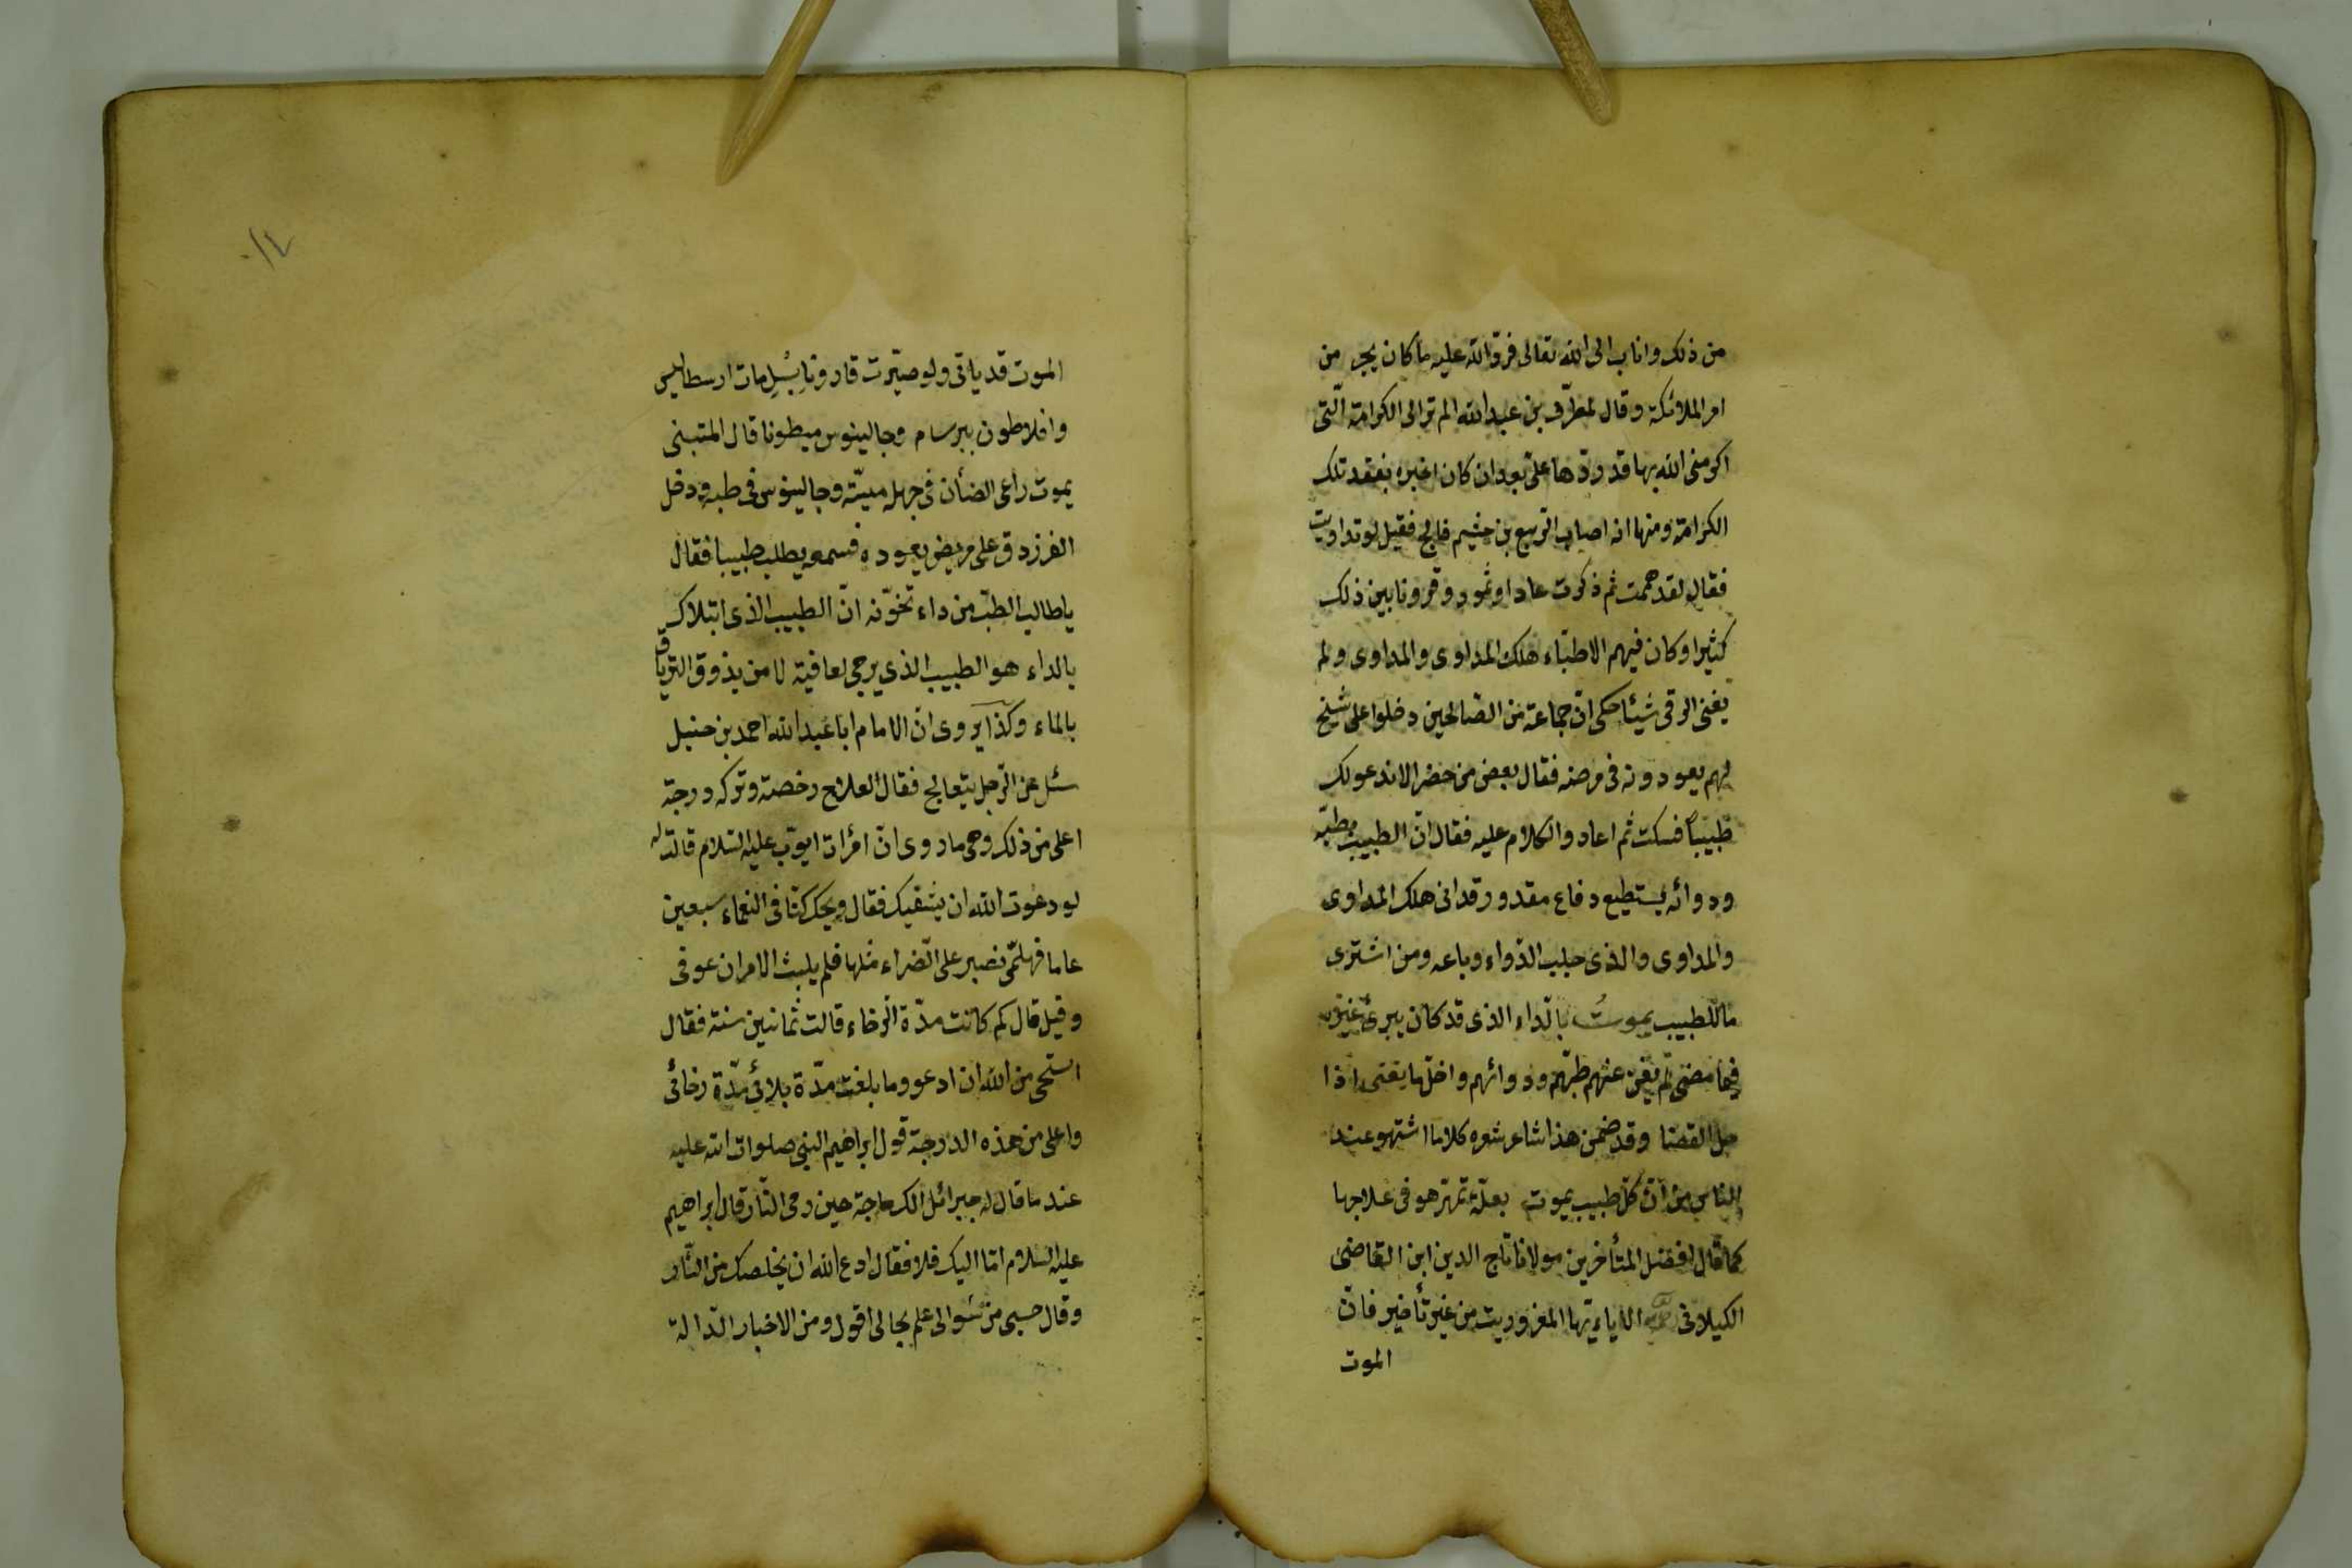 من ذلك واناب الى الله تعالى فردّ الله عليه ما كان يجد من
امر الملائكة وقال لمطرّف بن عبد الله الم تر الى الكرامة الّتى
اكرمنى الله بها قد ردّها علىّ بعد ان كان اخبره بفقد تلك
الكرامة ومنها انه اصاب الربيع بن خثيم فالج فقيل لو تداويت
فقال لقد هممت ثم ذكرت عادا وثمود وقرونا بين ذلك
كثيرا وكان فيهم الاطبّاء هلك المداوى والمداوى ولم
يغنى الرقى شيئا حكى انّ جماعة من الصالحين دخلوا على شيخ
لهم يعودونه فى مرضه فقال بعض من حضر الا ندعو لك
طبيباً فسكت ثم اعادوا الكلام عليه فقال انّ الطبيب بطبّه
ودوائه يستطيع دفاع مقدور قد اتى هلك المداوى
والمداوى والذى جلب الدّواء وباعه ومن اشترى
ما للطبيب يموت بالدّاء الذى قد كان يبرئ غيره
فيما مضى لم يغن عنهم طبّهم ودوائهم واخلّها يغنى اذا
حل القضا وقد ضمن هذا شاعر شعره كلاما اشتهر عند
الناس من انّ كلّ طبيب يموت بعلّة تمهّر هو فى علاجها
كما قال افضل المتأخرين مولانا تاج الدين ابن القاضى
الكيلانى الا يا ايّها المغرور تب من غير تأخير فانّ
الموت
١٤
الموت قد ياتى ولو صيّرت قارونا بسلّ مات ارسطاليس
وافلاطون ببرسام وجالينوس مبطونا قال المتنبى
يموت راعى الضأن فى جهله ميتة وجالينوس فى طبه ودخل
الفرزدق على مريض يعوده فسمعه يطلب طبيبا فقال
يا طالب الطبّ من داء تخوّنه انّ الطبيب الذى ابتلاك
بالداء هو الطبيب الذى يرجى لعافية لا من يذوق الترياق
بالماء وكذا يروى انّ الامام ابا عبد الله احمد بن حنبل
سئل عن الرّجل يتعالج فقال العلاج رخصة وتركه درجة
اعلى من ذلك وهى ما روى انّ امرأت ايوّب عليه السّلام قالت له
لو دعوت الله ان يشفيك فقال ويحك كنّا فى النعماء سبعين
عاما فهلمّى نصبر على الضّراء مثلها فلم يلبث الا مران عوفى
وقيل قال كم كانت مدّة الرّخاء قالت ثمانين سنة فقال
استحى من الله ان ادعو وما بلغت مدّة بلائى مدّة رخائى
واعلى من هذه الدرجة قول ابراهيم النبى صلوات الله عليه
عند ما قال له جبرائل الك حاجة حين رمى النّار قال ابراهيم
عليه السلام امّا اليك فلا فقال ادع الله ان يخلصك من النّار
وقال حسبى من سؤالى علم بحالى اقول ومن الاخبار الدّالة